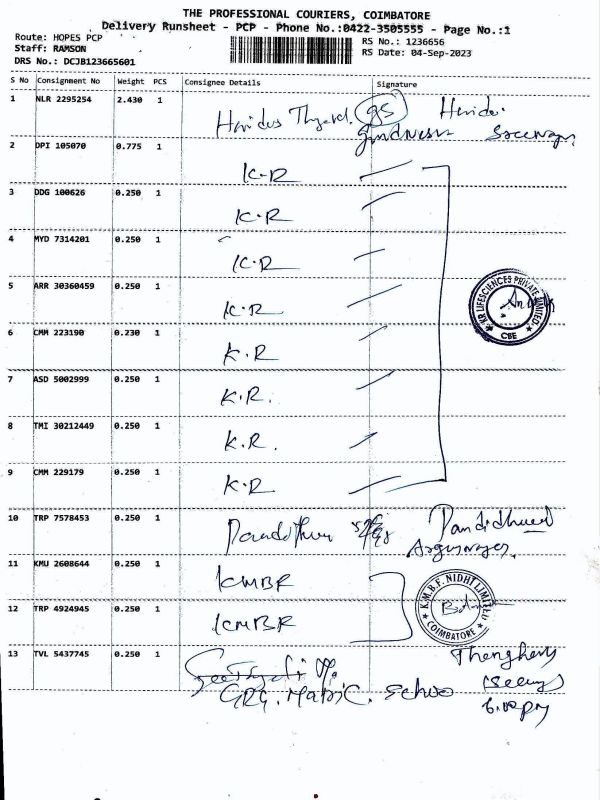 THE PROFESSIONAL COURIERS, COIMBATORE
Delivery Runsheet - PCP - Phone No.:0422-3505555 - Page No.:1
Route: HOPES PCP
Staff: RAMSON
DRS No.: DCJB123665601
RS No.: 1236656
RS Date: 04-Sep-2023
S No Consignment No Weight PCS Consignee Details Signature
1 NLR 2295254 2.430 1
2 DPI 105070 0.775 1 K.R
3 DDG 100626 0.250 1 K.R
4 MYD 7314201 0.250 1 K.R
5 ARR 30360459 0.250 1 K.R
KR LIFESCIENCES PRIVATE LIMITED
CBE
6 CMM 223190 0.230 1 K.R
7 ASD 5002999 0.250 1 K.R.
8 TMI 30212449 0.250 1 K.R.
9 CMM 229179 0.250 1 K.R
10 TRP 7578453 0.250 1
11 KMU 2608644 0.250 1 KMBR
K.M.B.F. NIDHI LIMITED
COIMBATORE
12 TRP 4924945 0.250 1 KMBR
13 TVL 5437745 0.250 1
GRG. Matric. Schoo
6.00pm